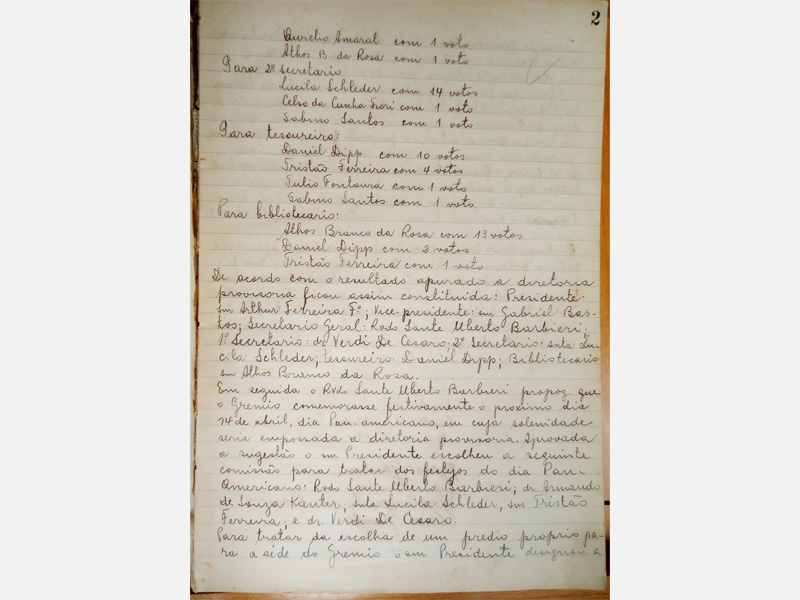 2
Aurelio Amaral com 1 voto
Athos B da Rosa com 1 voto
Para 2º secretario
Lucila Schleder com 14 votos
Celso da Cunha Fiori com 1 voto
Sabino Santos com 1 voto
Para tesoureiro:
Daniel Dipp com 10 votos
Tristão Ferreira com 4 votos
Tulio Fontoura com 1 voto
Sabino Santos com 1 voto
Para bibliotecario:
Athos Branco da Rosa com 13 votos
Daniel Dipp com 2 votos
Tristão Ferreira com 1 voto
De acordo com o resultado apurado a diretoria
provisoria ficou assim constituida: Presidente:
snr Arthur Ferreira Fº; Vice-presidente: snr Gabriel Bas-
tos; Secretario Geral: Rvdo Sante Uberto Barbieri;
1º Secretario: dr Verdi De Cesaro; 2º Secretario: snta Lu-
cila Schleder; tesoureiro: Daniel Dipp; Bibliotecario
snr Athos Branco da Rosa.
Em seguida o Rvdo Sante Uberto Barbieri propoz que
o Gremio comemorasse festivamente o proximo dia
14 de abril, dia Pan-americano, em cuja solenidade
seria empossada a diretoria provisoria. Aprovada
a sugestão o snr Presidente escolheu a seguinte
comissão para tratar dos festejos do dia Pan-
Americano: Rvdo Sante Uberto Barbieri; dr Armando
de Souza Kanter, snta Lucila Schleder, snr Tristão
Ferreira, e dr. Verdi De Cesaro.
Para tratar da escolha de um predio proprio pa-
ra a séde do Gremio o snr Presidente designou a